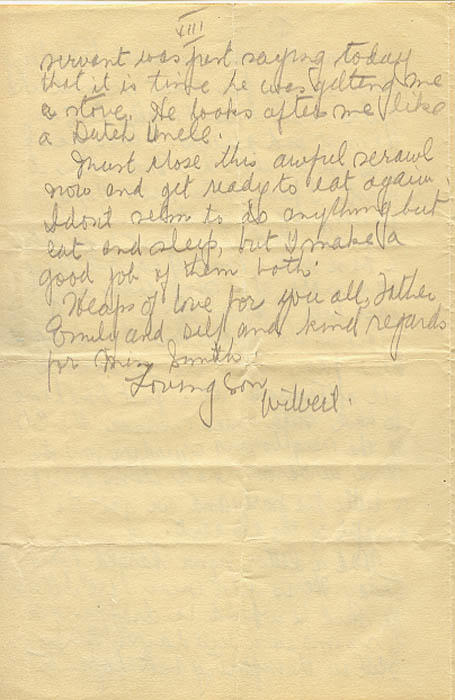 VIII
servant was just saying today
that it is time he was getting me
a stove. He looks after me like
a Dutch Uncle.
I must close this awful scrawl
now and get ready to eat again.
I dont seem to do anything but
eat and sleep, but I make a
good job of them both.
Heaps of love for you all, Father
Emily and self and kind regards
for Smith.
Loving Son
Wilbert.